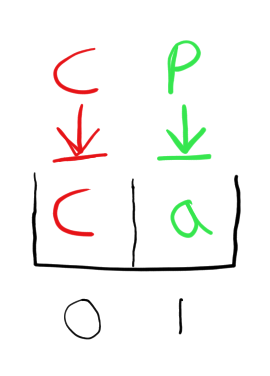 C P
C a
0 1